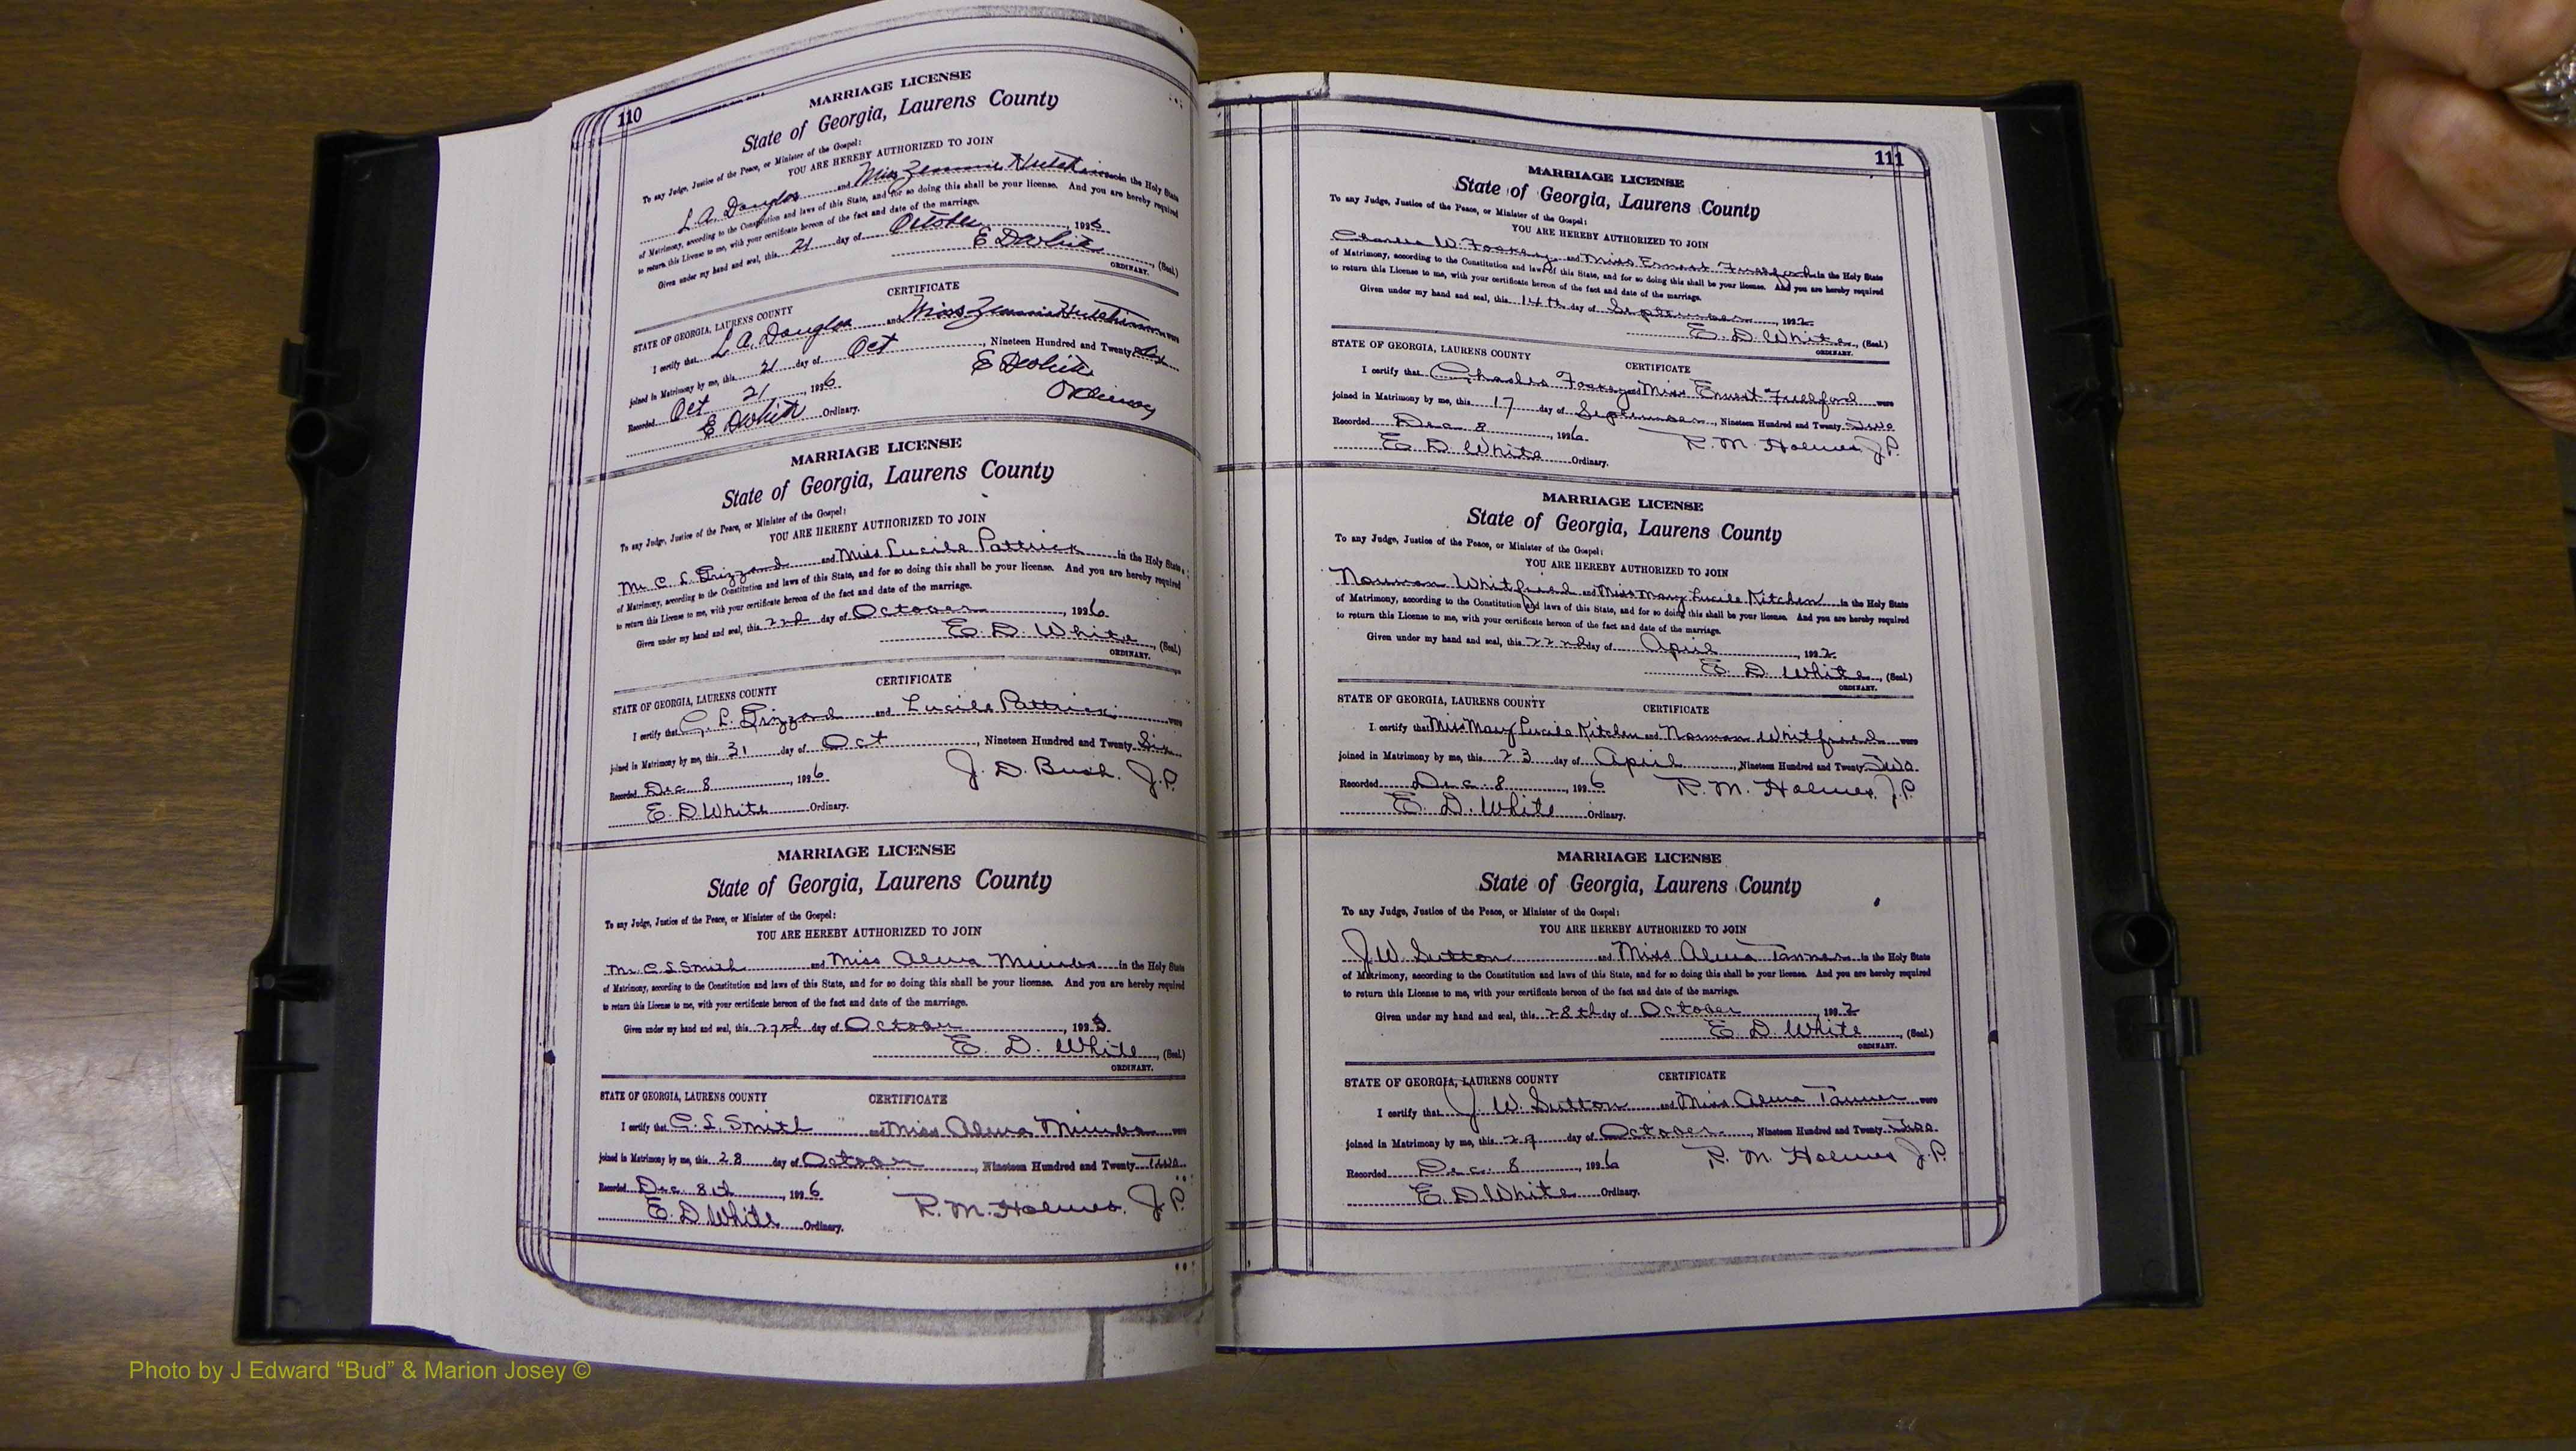 110
MARRIAGE LICENSE
State of Georgia, Laurens County
To any Judge, Justice of the Peace, or Minister of the Gospel:
YOU ARE HEREBY AUTHORIZED TO JOIN
L. A. Douglas and Miss in the Holy State
of Matrimony, according to the Constitution and laws of this State, and for so doing this shall be your license. And you are hereby required
to return this License to me, with your certificate hereon of the fact and date of the marriage.
Given under my hand and seal, this 21 day of October, 1926
E D White, (Seal)
ORDINARY.
CERTIFICATE
STATE OF GEORGIA, LAURENS COUNTY
I certify that L. A. Douglas and Miss were
joined in Matrimony by me, this 21 day of Oct, Nineteen Hundred and Twenty Six
Recorded Oct 21, 1926 E D White
E D White Ordinary. Ordinary
MARRIAGE LICENSE
State of Georgia, Laurens County
To any Judge, Justice of the Peace, or Minister of the Gospel:
YOU ARE HEREBY AUTHORIZED TO JOIN
Mr. C. L. Grizzard and Miss Lucile Pattrick in the Holy State
of Matrimony, according to the Constitution and laws of this State, and for so doing this shall be your license. And you are hereby required
to return this License to me, with your certificate hereon of the fact and date of the marriage.
Given under my hand and seal, this 22nd day of October, 1926
E. D. White, (Seal)
ORDINARY.
CERTIFICATE
STATE OF GEORGIA, LAURENS COUNTY
I certify that C. L. Grizzard and Lucile Pattrick were
joined in Matrimony by me, this 31 day of Oct, Nineteen Hundred and Twenty Six
Recorded Dec 8, 1926 J. D. Bush. J.P.
E. D White Ordinary.
MARRIAGE LICENSE
State of Georgia, Laurens County
To any Judge, Justice of the Peace, or Minister of the Gospel:
YOU ARE HEREBY AUTHORIZED TO JOIN
Mr C S Smith and Miss Alma in the Holy State
of Matrimony, according to the Constitution and laws of this State, and for so doing this shall be your license. And you are hereby required
to return this License to me, with your certificate hereon of the fact and date of the marriage.
Given under my hand and seal, this day of October, 192
E. D. White, (Seal)
ORDINARY.
STATE OF GEORGIA, LAURENS COUNTY CERTIFICATE
I certify that C. S. Smith and Miss Alma were
joined in Matrimony by me, this 28 day of October, Nineteen Hundred and Twenty Two
Recorded Dec. 8th, 1926 R. M. Holmes. J.P.
E. D White Ordinary.
111
MARRIAGE LICENSE
State of Georgia, Laurens County
To any Judge, Justice of the Peace, or Minister of the Gospel:
YOU ARE HEREBY AUTHORIZED TO JOIN
Charles W. Foskey and Miss Ernest Fullford in the Holy State
of Matrimony, according to the Constitution and laws of this State, and for so doing this shall be your license. And you are hereby required
to return this License to me, with your certificate hereon of the fact and date of the marriage.
Given under my hand and seal, this 14th day of September, 1922
E. D. White, (Seal)
ORDINARY.
STATE OF GEORGIA, LAURENS COUNTY CERTIFICATE
I certify that Charles Foskey and Miss Ernest Fullford were
joined in Matrimony by me, this 17 day of September, Nineteen Hundred and Twenty Two
Recorded Dec 8, 1926 R. M. Holmes J.P.
E. D White Ordinary.
MARRIAGE LICENSE
State of Georgia, Laurens County
To any Judge, Justice of the Peace, or Minister of the Gospel:
YOU ARE HEREBY AUTHORIZED TO JOIN
Norman Whitfield and Miss Mary Lucile Kitchen in the Holy State
of Matrimony, according to the Constitution and laws of this State, and for so doing this shall be your license. And you are hereby required
to return this License to me, with your certificate hereon of the fact and date of the marriage.
Given under my hand and seal, this 22nd day of April, 1922
E. D. White, (Seal)
ORDINARY.
STATE OF GEORGIA, LAURENS COUNTY CERTIFICATE
I certify that Miss Mary Lucile Kitchen and Norman Whitfield were
joined in Matrimony by me, this 23 day of April, Nineteen Hundred and Twenty Two
Recorded Dec. 8, 1926 R. M. Holmes. J.P.
E. D. White Ordinary.
MARRIAGE LICENSE
State of Georgia, Laurens County
To any Judge, Justice of the Peace, or Minister of the Gospel:
YOU ARE HEREBY AUTHORIZED TO JOIN
J. W. Sutton and Miss Alma Tanner in the Holy State
of Matrimony, according to the Constitution and laws of this State, and for so doing this shall be your license. And you are hereby required
to return this License to me, with your certificate hereon of the fact and date of the marriage.
Given under my hand and seal, this 28th day of October, 1922
E. D. White, (Seal)
ORDINARY.
STATE OF GEORGIA, LAURENS COUNTY CERTIFICATE
I certify that J. W. Sutton and Miss Alma Tanner were
joined in Matrimony by me, this 29 day of October, Nineteen Hundred and Twenty Two
Recorded Dec. 8, 1926 R. M. Holmes J.P.
E. D White Ordinary.
Photo by J Edward “Bud” & Marion Josey ©